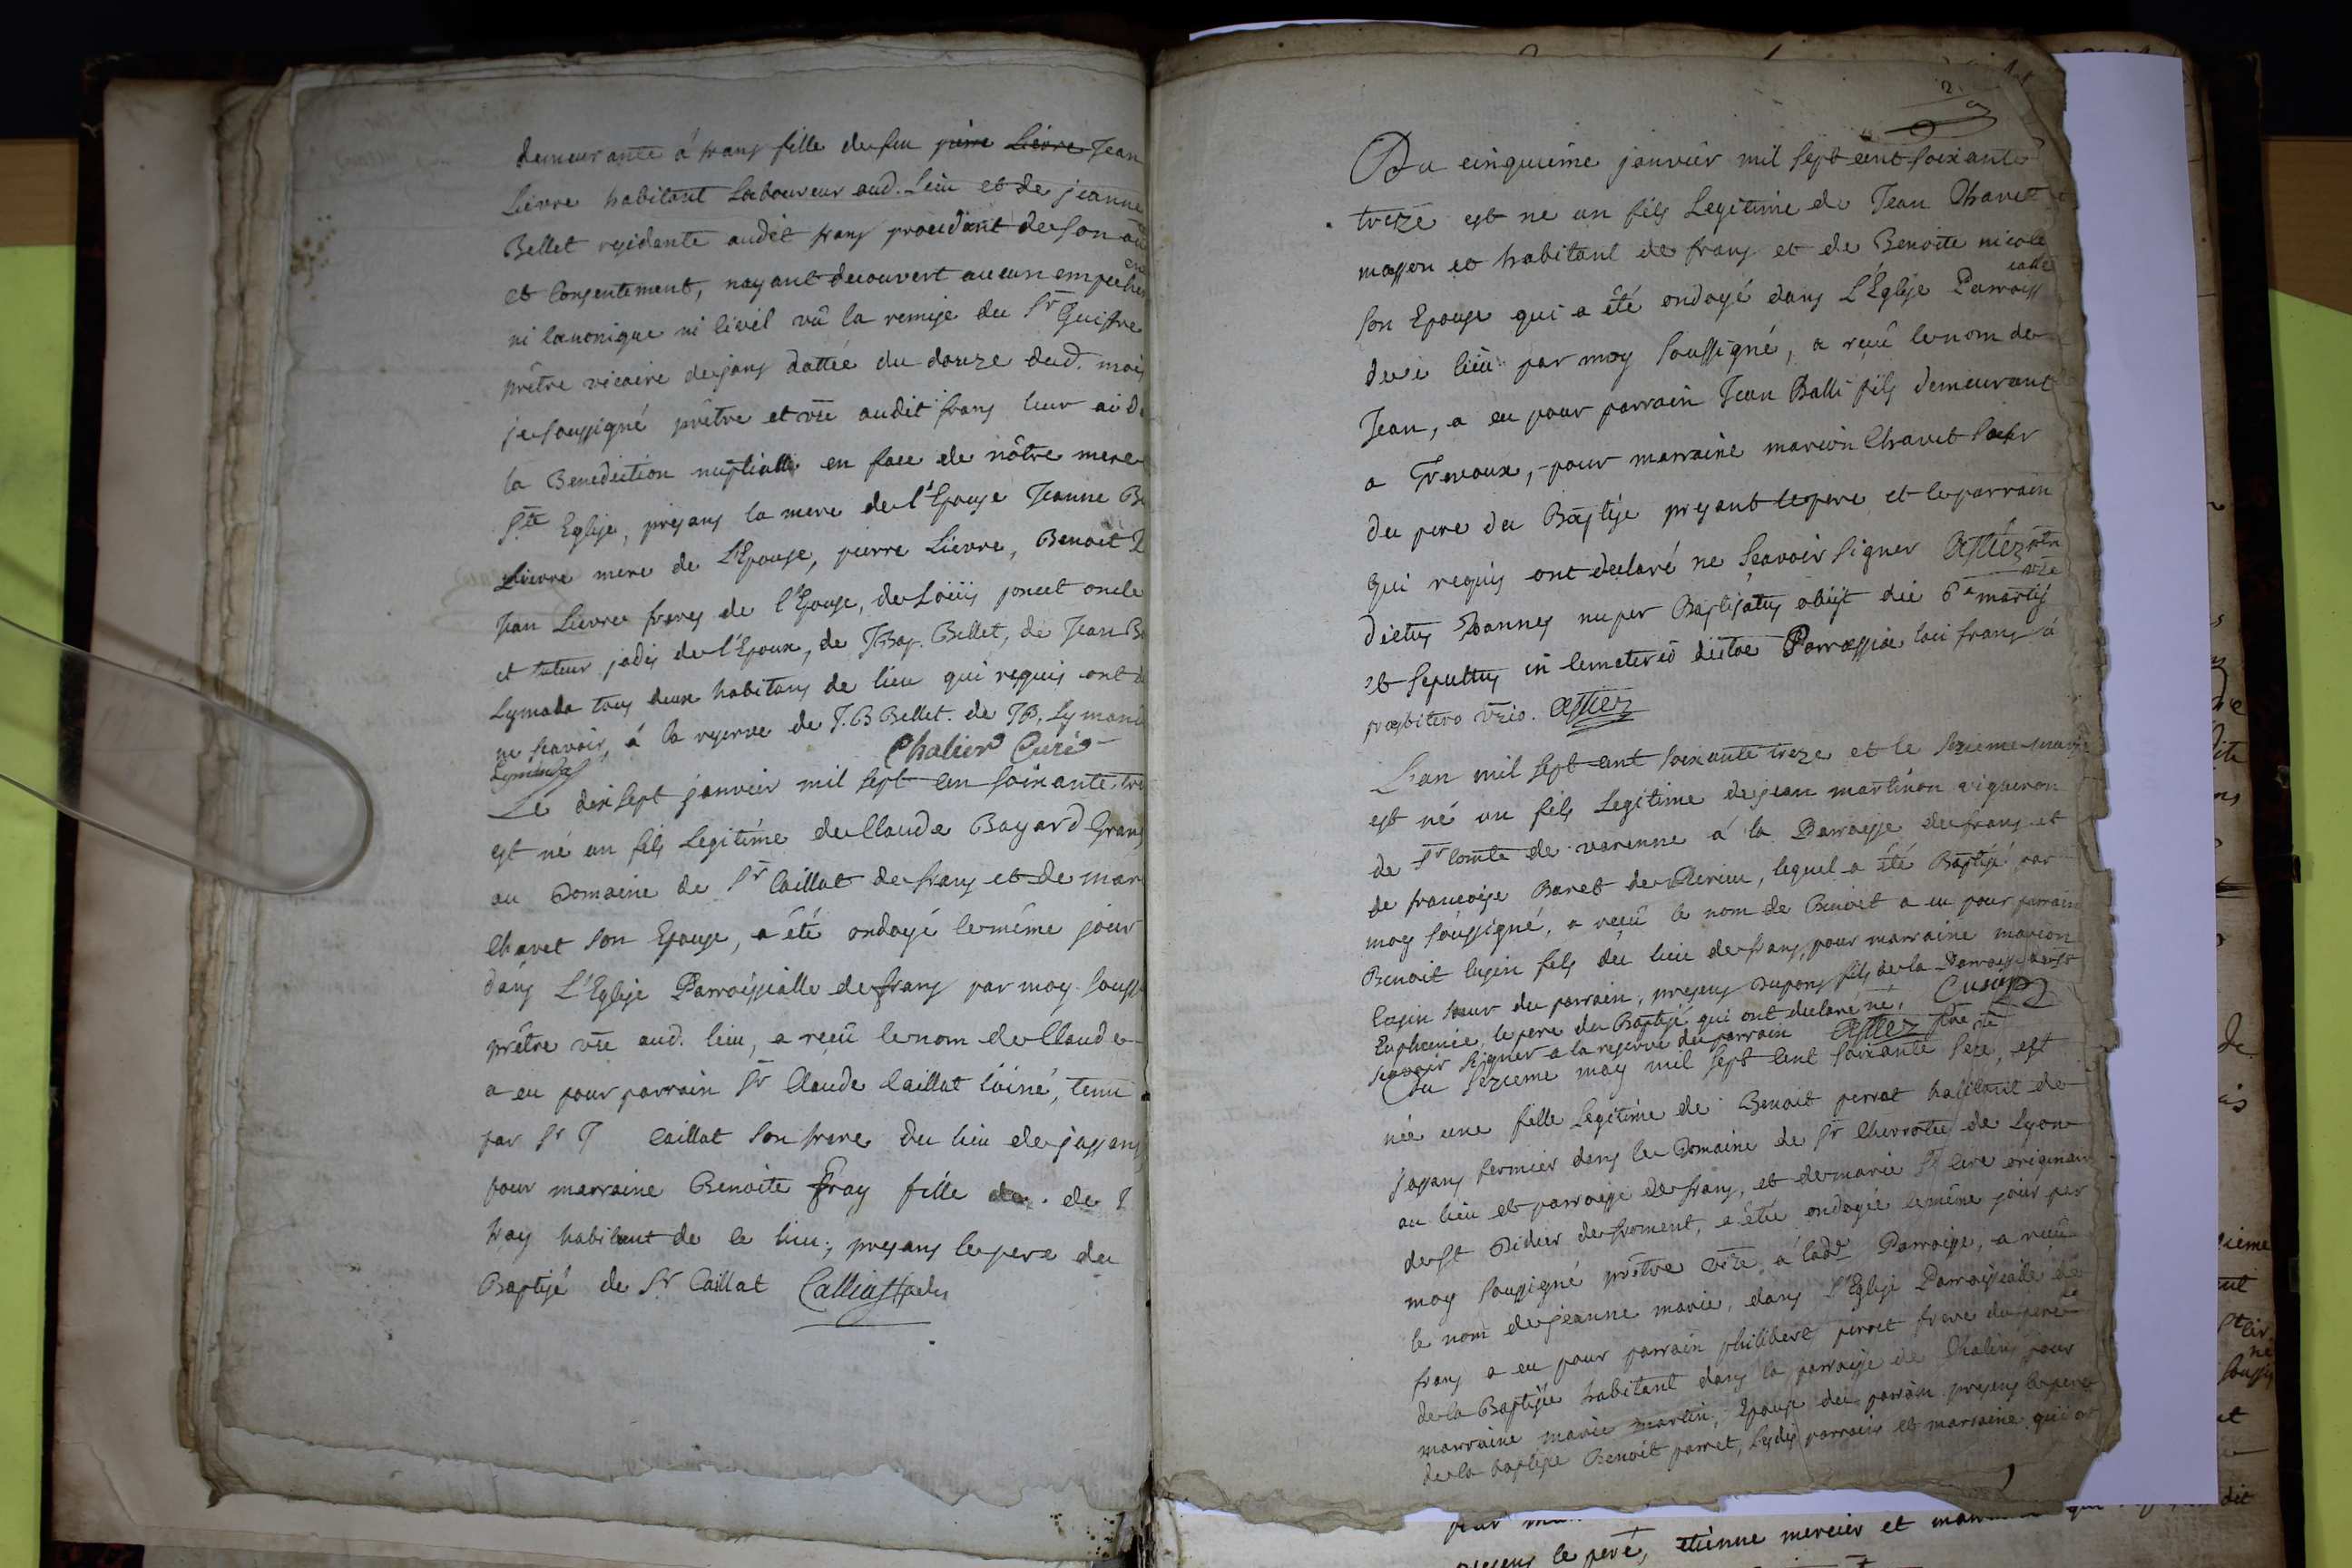 demeurante á frans fille de feu pierre Lievre Jean
Lievre habitant Laboureur aud. Lieu et de jeanne
Bellet residante audit frans procedant de son
et consentement, nayant decouvert aucun empeche
ni canonique ni civil vû la remise du Sr
prêtre vicaire de jans dattée du douze dud. mois
je soussigné prêtre et vre audit frans leur ai d
la Benediction nuptialle en face de nôtre mere
Ste Eglise, presans la mere de l'Epouse Jeanne Be
Lievre mere de L'Epouse, pierre Lievre, Benoit L
Jean Lievre freres de l'Epouse, de Loüis poncet oncle
et tuteur jadis de l'Epoux, de J Bap. Bellet, de Jean B
Lymada tous deux habitans de lieu qui requis ont d
ne scavoir, á la reserve de J. B Bellet. de JB. Lymand
Chalier Curé
Le dix sept janvier mil sept cen soixante tre
est né un fils Legitime de Claude Bayard Grang
au Domaine de Sr Caillat de frans et de mari
Chavet son Epouse, a été ondoyé le même jour
dans L'Eglise Parroissialle de frans par moy souss
prêtre vre aud. lieu, a reçû le nom de Claude
a eu pour parrain Sr Claude Caillat l'ainé, tenu
par Sr J Caillat son frere du lieu de jassans
pour marraine Benoite fray fille de. de
fray habitant de ce lieu, presans le pere du
Baptisé de Sr Caillat
2
Du cinquieme janvier mil sept cent soixante
treize est ne un fils Legitime de Jean Chavet
masson et habitant de frans et de Benoite nicole
son Epouse qui a été ondoyé dans L'Église Parroiss
ialle
de ce lieu par moy soussigné, a reçû le nom de
Jean, a eu pour parrain Jean Balli fils demeurant
a Trevoux, pour marraine marion Chavet soeur
du pere du Baptise presant le pere et le parrain
qui requis ont declaré ne sçavoir signer Astier ptre
vre
dictus Joannes nuper Baptisatus obiit die 6a martis
et sepultus in cemeterio dictae Parrossiae loci frans á
presbitero vrio. Astier
L'an mil sept cent soixante treze et le sezieme
est né un fils Legitime de jean martinon vigneron
de Sr Comte de varenne á la Parroisse de frans et
de francoise Baret de, lequel a été Baptisé par
moy soussigné, a reçû le nom de Benoit a eu pour parrain
Benoit Cusin fils du lieu de frans, pour marraine marion
Cusin soeur du parrain, presens Dupons fils de la Parroisse de Ste
Euphemie, le pere du Baptisé qui ont declaré ne, Cusin
scavoir signer a la reserve du parrain Astier ptre vre
Du sezieme may mil sept cent soixante seze, est
née une fille Legitime de Benoit perret habitant de
jassans fermier dans le Domaine de Sr Cherrotie de Lyon
au lieu et parroisse de frans, et de marie originaire
de St Didier de froment, a été ondoyée le même jour par
moy soussigné prêtre vre á lade Parroisse, a reçû
le nom de jeanne marie, dans L'Eglise Parroissialle de
frans a eu pour parrain philibert perret frere du pere
de la Baptisée habitant dans la parroisse de Chaleins pour
marraine marie martin, Epouse du parrain presens le pere
de la baptisée Benoit parret, lesdis parrains et marraine qui ont
presens le pere, etienne mercier et